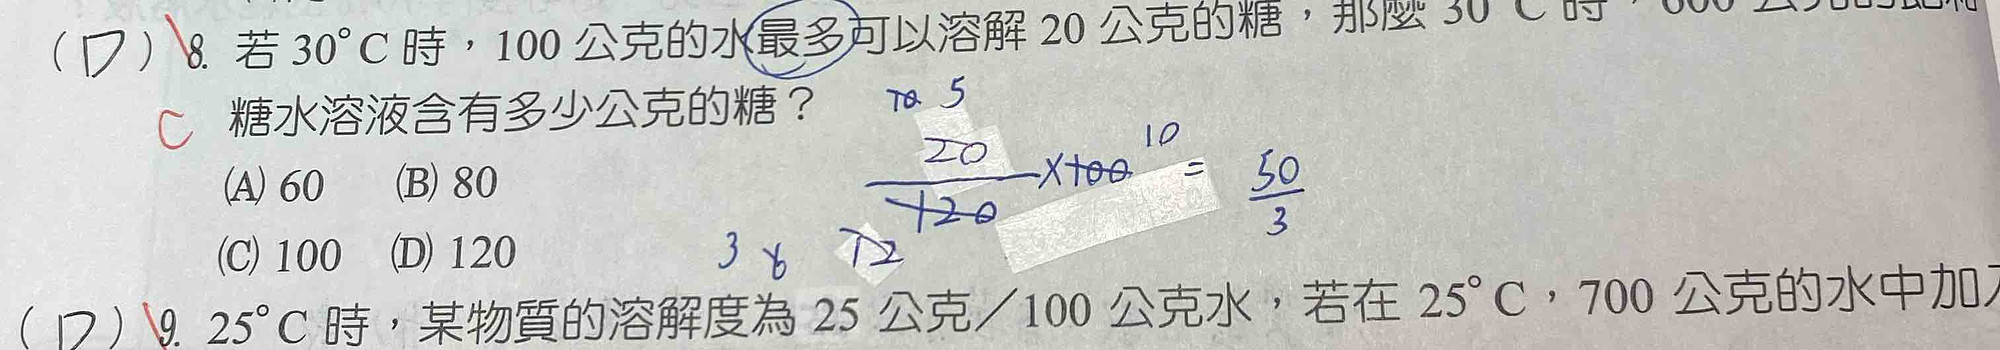 (D) 8. 若 30°C 時，100 公克的水最多可以溶解 20 公克的糖，那麼 30°C 時，600
C 糖水溶液含有多少公克的糖？
10 5
20
120
×100 10 = 50/3
(A) 60 (B) 80
(C) 100 (D) 120
3 6 12
(D) 9. 25°C 時，某物質的溶解度為 25 公克／100 公克水，若在 25°C，700 公克的水中加